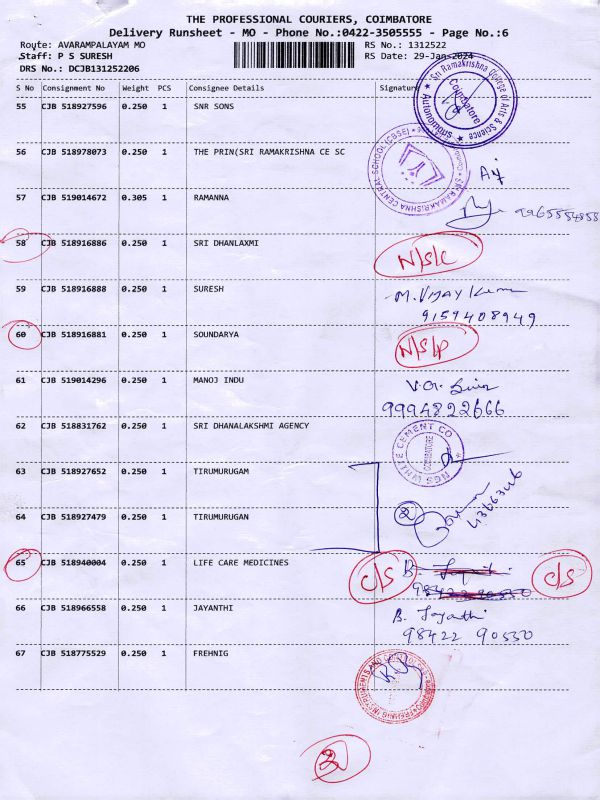 THE PROFESSIONAL COURIERS, COIMBATORE
Delivery Runsheet - MO - Phone No.:0422-3505555 - Page No.:6
Route: AVARAMPALAYAM MO RS No.: 1312522
Staff: P S SURESH RS Date: 29-Jan-2024
DRS No.: DCJB131252206
S No Consignment No Weight PCS Consignee Details Signature
Sri Ramakrishna College of Arts & Science
Coimbatore
Autonomous
55 CJB 518927596 0.250 1 SNR SONS
SRI RAMAKRISHNA CENTRAL SCHOOL (CBSE)
56 CJB 518978073 0.250 1 THE PRIN(SRI RAMAKRISHNA CE SC
57 CJB 519014672 0.305 1 RAMANNA
58 CJB 518916886 0.250 1 SRI DHANLAXMI N/S/C
59 CJB 518916888 0.250 1 SURESH M. Vijay Kumar
9159408949
60 CJB 518916881 0.250 1 SOUNDARYA N/S/P
61 CJB 519014296 0.250 1 MANOJ INDU
9994822666
62 CJB 518831762 0.250 1 SRI DHANALAKSHMI AGENCY
NGS WHITE CEMENT CO
COIMBATORE
63 CJB 518927652 0.250 1 TIRUMURUGAM
64 CJB 518927479 0.250 1 TIRUMURUGAN
2
65 CJB 518940004 0.250 1 LIFE CARE MEDICINES C/S C/S
66 CJB 518966558 0.250 1 JAYANTHI B. Jayanthi
98422 90530
67 CJB 518775529 0.250 1 FREHNIG
2